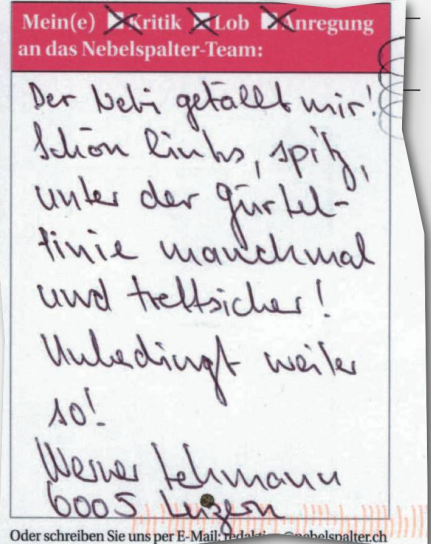 Mein(e) Kritik Lob Anregung
an das Nebelspalter-Team:
Der Nebi gefällt mir!
Schön links, spitz,
unter der Gürtel-
linie manchmal
und treffsicher!
Unbedingt weiter
so!
Werner Lehmann
6005 Luzern
Oder schreiben Sie uns per E-Mail: redaktion@nebelspalter.ch